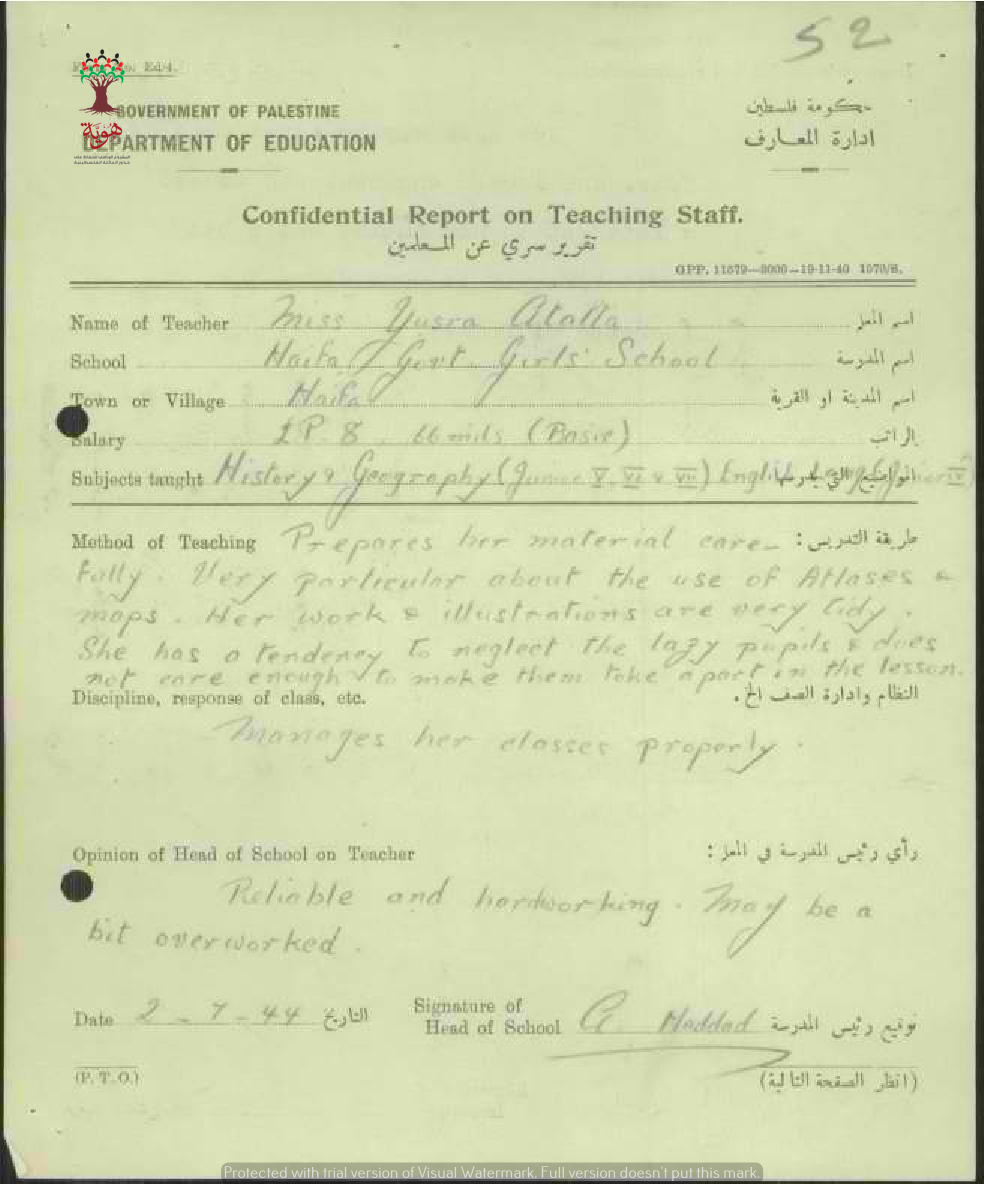 52
Ed/4.
GOVERNMENT OF PALESTINE
حكومة فلسطين
DEPARTMENT OF EDUCATION
ادارة المعارف
هوية
Confidential Report on Teaching Staff.
تقرير سري عن المعلمين
GPP. 11579—3000—19-11-40 1570/S.
Name of Teacher Miss Yusra Atalla اسم المعلم
School Haifa / Govt Girls' School اسم المدرسة
Town or Village Haifa اسم المدينة او القرية
Salary LP. 8 . 66 mils (Basic) الراتب
Subjects taught History & Geography (Junior V, VI & VII) English Lang (Junior IV) المواضيع التي يدرسها
Method of Teaching Prepares her material care- طريقة التدريس :
fully. Very particular about the use of Atlases &
maps. Her work & illustrations are very tidy.
She has a tendency to neglect the lazy pupils & does
not care enough to make them take a part in the lesson.
Discipline, response of class, etc. النظام وادارة الصف الخ.
Manages her classes properly.
Opinion of Head of School on Teacher رأي رئيس المدرسة في المعلم :
Reliable and hardworking. May be a
bit overworked.
Date 2-7-44 التاريخ Signature of Head of School A. Haddad توقيع رئيس المدرسة
(P. T. O.) (انظر الصفحة التالية)
Protected with trial version of Visual Watermark. Full version doesn't put this mark.